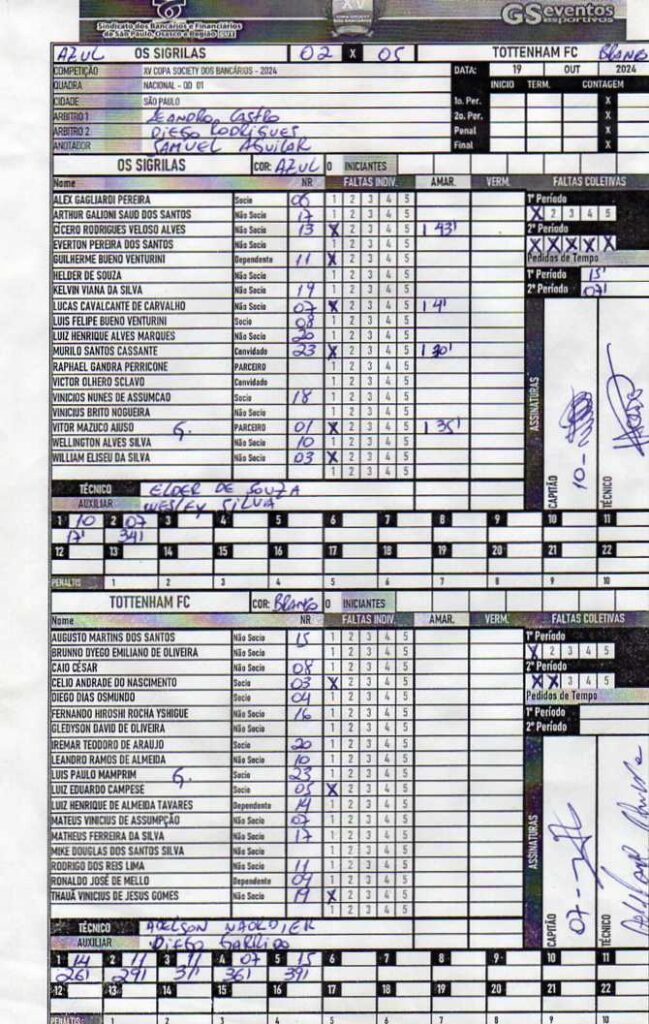 Sindicato dos Bancários e Financiários
de São Paulo, Osasco e Região CUT
XV
GSeventos
esportivos
AZUL OS SIGRILAS 02 X 05 TOTTENHAM FC BRANCO
COMPETIÇÃO XV COPA SOCIETY DOS BANCÁRIOS - 2024 DATA: 19 OUT 2024
QUADRA NACIONAL - QD 01 INICIO TERM. CONTAGEM
CIDADE SÃO PAULO 1o. Per. X
ARBITRO 1 LEANDRO CASTRO 2o. Per. X
ARBITRO 2 DIEGO RODRIGUES Penal X
ANOTADOR SAMUEL AGUILAR Final X
OS SIGRILAS COR: AZUL 0 INICIANTES
Nome NR FALTAS INDIV. AMAR. VERM. FALTAS COLETIVAS
ALEX GAGLIARDI PEREIRA Socio 06 1 2 3 4 5 1º Período
ARTHUR GALIONI SAUD DOS SANTOS Não Socio 17 1 2 3 4 5 X 2 3 4 5
CÍCERO RODRIGUES VELOSO ALVES Não Socio 13 X 2 3 4 5 1 43' 2º Período
EVERTON PEREIRA DOS SANTOS Não Socio 1 2 3 4 5 X X X X X
GUILHERME BUENO VENTURINI Dependente 11 X 2 3 4 5 Pedidos de Tempo
HELDER DE SOUZA Não Socio 1 2 3 4 5 1º Período 15'
KELVIN VIANA DA SILVA Não Socio 19 1 2 3 4 5 2º Período 07'
LUCAS CAVALCANTE DE CARVALHO Não Socio 07 X 2 3 4 5 1 4'
LUIS FELIPE BUENO VENTURINI Socio 08 1 2 3 4 5
LUIZ HENRIQUE ALVES MARQUES Não Socio 20 1 2 3 4 5
MURILO SANTOS CASSANTE Convidado 23 X 2 3 4 5 1 30'
RAPHAEL GANDRA PERRICONE PARCEIRO 1 2 3 4 5
VICTOR OLHERO SCLAVO Convidado 1 2 3 4 5
VINICIOS NUNES DE ASSUMCAO Socio 18 1 2 3 4 5
VINICIUS BRITO NOGUEIRA Não Socio 1 2 3 4 5
VITOR MAZUCO AIUSO G. PARCEIRO 01 X 2 3 4 5 1 35'
WELLINGTON ALVES SILVA Não Socio 10 1 2 3 4 5
WILLIAM ELISEU DA SILVA Não Socio 03 X 2 3 4 5
1 2 3 4 5
ASSINATURAS
CAPITÃO 10 -
TÉCNICO
TÉCNICO ELDER DE SOUZA
AUXILIAR WESLEY SILVA
1 10 2 07 3 4 5 6 7 8 9 10 11
17' 34'
12 13 14 15 16 17 18 19 20 21 22
PENALTIS 1 2 3 4 5 6 7 8 9 10
TOTTENHAM FC COR: BRANCO 0 INICIANTES
Nome NR FALTAS INDIV. AMAR. VERM. FALTAS COLETIVAS
AUGUSTO MARTINS DOS SANTOS Não Socio 15 1 2 3 4 5 1º Período
BRUNNO DYEGO EMILIANO DE OLIVEIRA Não Socio 1 2 3 4 5 X 2 3 4 5
CAIO CÉSAR Não Socio 08 1 2 3 4 5 2º Período
CELIO ANDRADE DO NASCIMENTO Socio 03 X 2 3 4 5 X X 3 4 5
DIEGO DIAS OSMUNDO Socio 04 1 2 3 4 5 Pedidos de Tempo
FERNANDO HIROSHI ROCHA YSHIGUE Não Socio 16 1 2 3 4 5 1º Período
GLEDYSON DAVID DE OLIVEIRA Não Socio 1 2 3 4 5 2º Período
IREMAR TEODORO DE ARAUJO Socio 20 1 2 3 4 5
LEANDRO RAMOS DE ALMEIDA Não Socio 10 1 2 3 4 5
LUIS PAULO MAMPRIM G. Socio 23 1 2 3 4 5
LUIZ EDUARDO CAMPESE Socio 05 X 2 3 4 5
LUIZ HENRIQUE DE ALMEIDA TAVARES Dependente 14 1 2 3 4 5
MATEUS VINICIUS DE ASSUMPÇÃO Não Socio 07 1 2 3 4 5
MATHEUS FERREIRA DA SILVA Não Socio 17 1 2 3 4 5
MIKE DOUGLAS DOS SANTOS SILVA Não Socio 1 2 3 4 5
RODRIGO DOS REIS LIMA Não Socio 11 1 2 3 4 5
RONALDO JOSÉ DE MELLO Dependente 09 1 2 3 4 5
THAUÃ VINICIUS DE JESUS GOMES Não Socio 19 X 2 3 4 5
1 2 3 4 5
ASSINATURAS
CAPITÃO 07 -
TÉCNICO
TÉCNICO ADELSON
AUXILIAR DIEGO GARRIDO
1 14 2 11 3 11 4 07 5 15 6 7 8 9 10 11
26' 29' 31' 36' 39'
12 13 14 15 16 17 18 19 20 21 22
PENALTIS 1 2 3 4 5 6 7 8 9 10